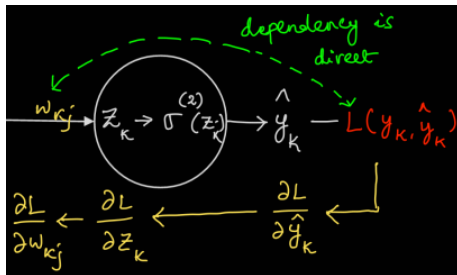 dependency is
direct
w_{kj} z_k → σ^{(2)}(z_k) → ŷ_k — L(y_k, ŷ_k)
∂L/∂w_{kj} ← ∂L/∂z_k ← ∂L/∂ŷ_k ←